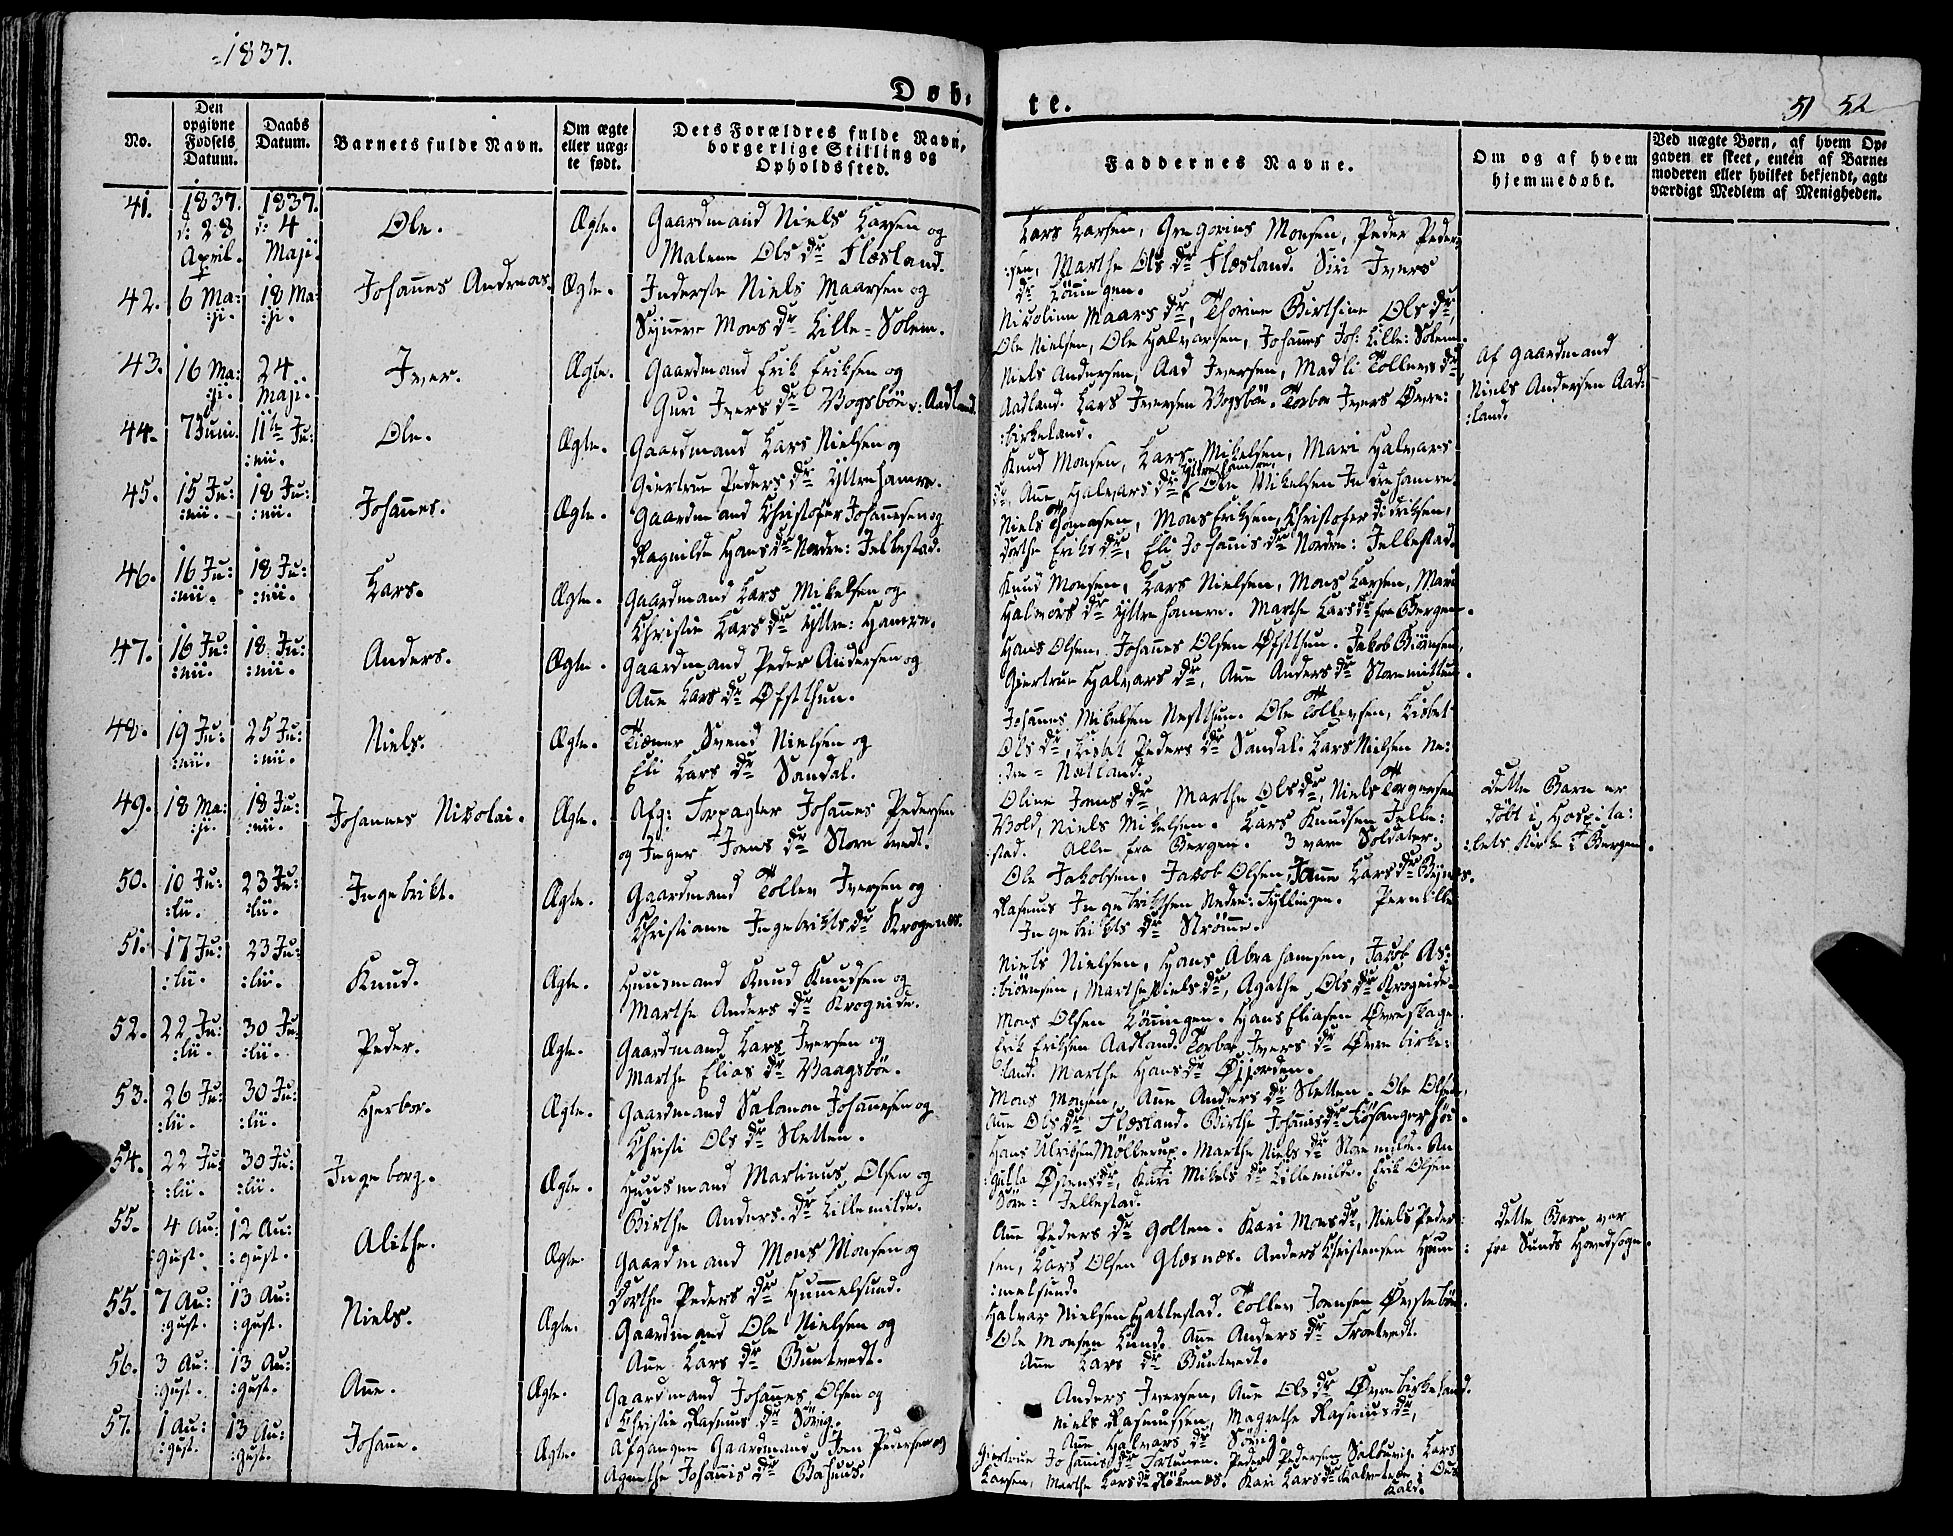 1837.
Døb-
te.
51 52
No.
Den opgivne Fødsels Datum.
Daabs Datum.
Barnets fulde Navn.
Om ægte eller uæg-te født.
Dets Forældres fulde Navn, borgerlige Stilling og Opholdssted.
Faddernes Navne.
Om og af hvem hjemmedøbt.
Ved uægte Børn, af hvem Op-gaven er skeet, enten af Barne-moderen eller hvilket bekjendt, agt-værdigt Medlem af Menigheden.
41. 1837. d: 28 April. 1837. d: 4 Maji. Ole. Ægte.
Gaardmand Niels Larsen og
Malene Ols dr Flesland.
Lars Larsen, Gregorius Monsen, Peder Peder:
:sen, Marthe Ols dr Flesland. Siri Ivers
dr Lönningen.
42. 6 Ma: :ji. 18 Ma: :ji. Johannes Andreas. Ægte.
Inderste Niels Maarsen og
Synneve Mons dr Lille-Solem.
Nicoline Maars dr, Thorine Birthine Ols dr,
Ole Nielsen, Ole Halvarsen, Johannes Joh: Lille: Solem.
43. 16 Ma: :ji. 24 Maji. Iver. Ægte.
Gaardmand Erik Eriksen og
Guri Ivers dr Vogsböe v: Aadland.
Niels Andersen, Aad Iversen, Madli Tollevs dr
Aadland. Lars Iversen Vogsböe. Torbor Ivers Övre:
:birkeland.
Af Gaardmand
Niels Andersen Aad:
:land.
44. 7 Juni. 11te Ju: :nii. Ole. Ægte.
Gaardmand Lars Nielsen og
Giertrue Peders dr Yttrehamre.
Knud Monsen, Lars Mikelsen, Mari Halvars
dr, Anne Halvars dr Yttrehamre, Ole Mikelsen Indrehamre.
45. 15 Ju: :nii. 18 Ju: :nii. Johannes. Ægte.
Gaardmand Christofer Johannesen og
Ragnilde Hans dr Nordre: Jellestad.
Niels Thomasen, Mons Eriksen, Christofer Didriksen,
Dorthe Eriks dr, Eli Johannis dr Nordre: Jellestad.
46. 16 Ju: :nii. 18 Ju: :nii. Lars. Ægte.
Gaardmand Lars Mikelsen og
Christie Lars dr Yttre: Hamre.
Knud Monsen, Lars Nielsen, Mons Larsen, Mari
Halvors dr Yttrehamre. Marthe Lars dr fra Bergen.
47. 16 Ju: :nii. 18 Ju: :nii. Anders. Ægte.
Gaardmand Peder Andersen og
Anne Lars dr Øfsthun.
Hans Olsen, Johannes Olsen Øfsthun. Jakob Biörnsen,
Giertrue Halvars dr, Anne Anders dr Storemittun.
48. 19 Ju: :nii. 25 Ju: :nii. Niels. Ægte.
Tiener Svend Nielsen og
Eli Lars dr Sandal.
Johannes Mikelsen Nestthun. Ole Tollevsen, Lisbet
Ols dr, Lisbet Peders dr Sandal. Lars Nielsen Ne:
:dre-Natland.
49. 18 Ma: :ji. 18 Ju: :nii. Johannes Nikolai. Ægte.
Afg: Forpagter Johannes Pedersen
og Inger Joens dr Storetvedt.
Oline Joens dr, Marthe Ols dr, Niels Torgersen
Vold, Niels Mikelsen. Lars Knudsen Jelle:
:stad. Alle fra Bergen. 3 vare Soldater.
Dette Barn er
döbt i Hospita:
:lets Kirke i Bergen.
50. 10 Ju: :lii. 23 Ju: :lii. Ingebrikt. Ægte.
Gaardmand Tollev Iversen og
Christiane Ingebrikts dr Krogenes.
Ole Jakobsen, Jakob Olsen, Janne Lars dr Bönes.
Rasmus Ingebriktsen Nedre: Fyllingen. Pernille
Ingebrikts dr Strömme.
51. 17 Ju: :lii. 23 Ju: :lii. Knud. Ægte.
Huusmand Knud Knudsen og
Marthe Anders dr Krogeide.
Niels Nielsen, Hans Abrahamsen, Jakob As:
:biörnsen, Marthe Niels dr, Agathe Ols dr Krogeide.
52. 22 Ju: :lii. 30 Ju: :lii. Peder. Ægte.
Gaardmand Lars Iversen og
Marthe Elias dr Vaagsböe.
Mons Olsen Lönningen. Hans Eliasen Övreskage.
Erik Eriksen Aadland. Torbor Ivers dr Övre birke:
:land. Marthe Hans dr Øjjorden.
53. 26 Ju: :lii. 30 Ju: :lii. Herbor. Ægte.
Gaardmand Salamon Johannesen og
Christi Ols dr Sletten.
Mons Monsen, Anne Anders dr Sletten. Ole Olsen,
Anne Ols dr Flesland. Birthe Johannis dr
54. 22 Ju: :lii. 30 Ju: :lii. Ingeborg. Ægte.
Huusmand Martinus Olsen og
Birthe Anders dr Lillemilde.
Hans Ulriksen Möllerup. Marthe Niels dr Storemilde. An
:gulla Östens dr, Kari Mikels dr Lillemilde. Erik Olsen
Söre: Jellestad.
55. 4 Au: :gust. 12 Au: :gust. Alithe. Ægte.
Gaardmand Mons Monsen og
Dorthe Peders dr Hummelsund.
Anne Peders dr Golten. Kari Mons dr, Niels Peder:
:sen, Lars Olsen Glesnæs. Anders Christensen Hum:
:melsund.
Dette Barn var
fra Sunds Hovedsogn.
55. 7 Au: :gust. 13 Au: :gust. Niels. Ægte.
Gaardmand Ole Nielsen og
Anne Lars dr Buntvedt.
Halvar Nielsen Hattestad. Tollev Joensen Övsteböe.
Ole Monsen Lund. Anne Anders dr Trontvedt.
Anne Lars dr Buntvedt.
56. 3 Au: :gust. 13 Au: :gust. Anne. Ægte.
Gaardmand Johannes Olsen og
Christie Rasmus dr Sörig.
Anders Iversen, Anne Ols dr Övrebirkeland.
Niels Rasmussen, Magrethe Rasmus dr,
Anne Halvars dr Sörig.
57. 1 Au: :gust. 13 Au: :gust. Johanne. Ægte.
Afgangen Gaardmand Joen Pedersen og
Agnethe Johannis dr Bahuus.
Giertrue Johannis dr Fortunen. Peder Pedersen Lars
Larsen, Marthe Lars dr Rökenes. Kari Lars dr